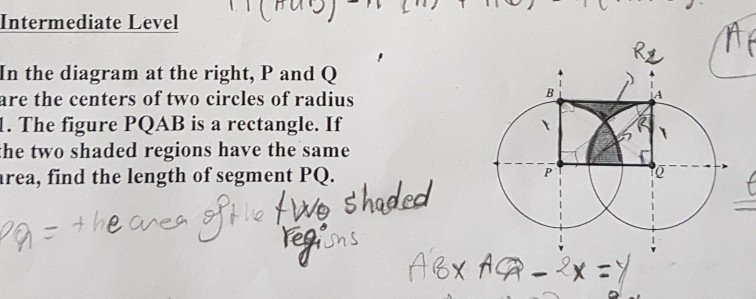 Intermediate Level
In the diagram at the right, P and Q
are the centers of two circles of radius
1. The figure PQAB is a rectangle. If
the two shaded regions have the same
area, find the length of segment PQ.
PQ = the area of the two shaded
regions
R2
B A
P Q
ABX AQ - 2x = y